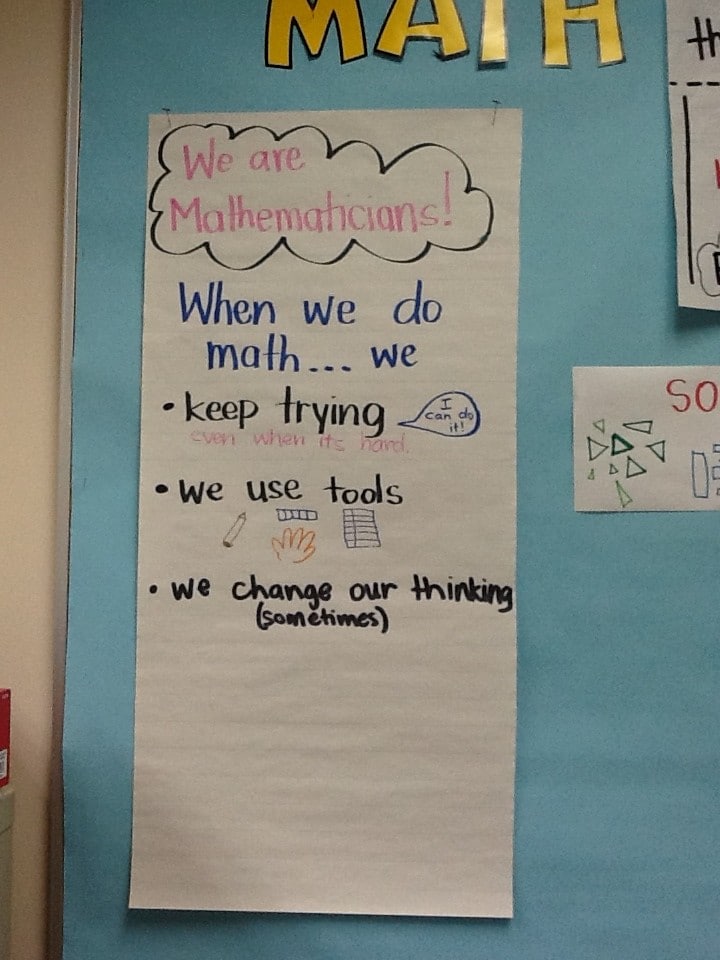 MATH
We are
Mathematicians!
When we do
math... we
• keep trying
I
can do
it!
even when its hard.
• we use tools
• we change our thinking
(sometimes)
th
SO